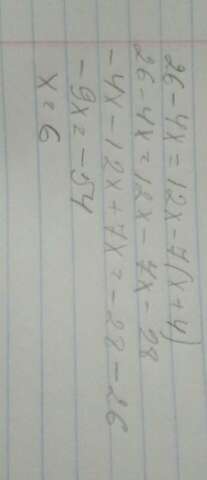 26-4x=12x-7(x+4)
26-4x=12x-7x-28
-4x-12x+7x=-28-26
-9x=-54
x=6